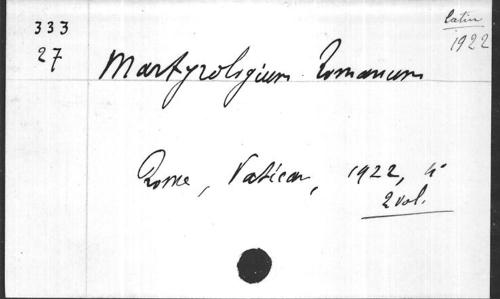 333
27
latin
1922
Martyrologium Romanum
Rome, Vatican, 1922, 4°
2 vol.